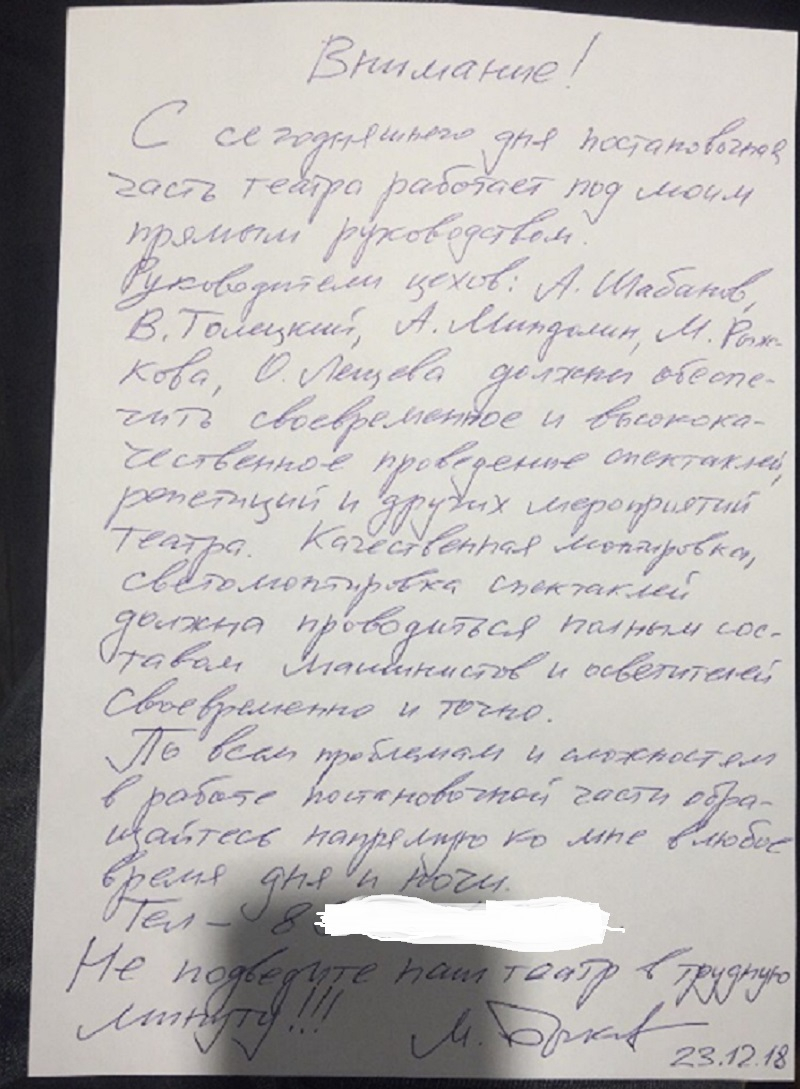 Внимание!
С сегодняшнего дня постановочная
часть театра работает под моим
прямым руководством.
Руководители цехов: А. Шабанов,
В. Толецкий, А. Миндолин, М. Рыж-
кова, О. Лещева должны обеспе-
чить своевременное и высокока-
чественное проведение спектаклей,
репетиций и других мероприятий
театра. Качественная монтировка,
светомонтировка спектаклей
должна проводиться полным сос-
тавом машинистов и осветителей
своевременно и точно.
По всем проблемам и сложностям
в работе постановочной части обра-
щайтесь напрямую ко мне в любое
время дня и ночи.
Тел – 8
Не подведите наш театр в трудную
минуту!!! М.
23.12.18